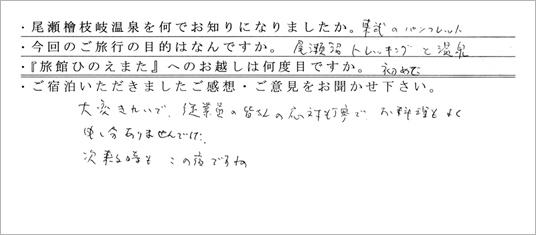 ・尾瀬檜枝岐温泉を何でお知りになりましたか。東武のパンフレット
・今回のご旅行の目的はなんですか。 尾瀬沼トレッキングと温泉
・『旅館ひのえまた』へのお越しは何度目ですか。 初めて
・ご宿泊いただきましたご感想・ご意見をお聞かせ下さい。
大変きれいで、従業員の皆さんの応対も丁寧で、お料理もよく
申し分ありませんでした。
次来る時も この宿ですね